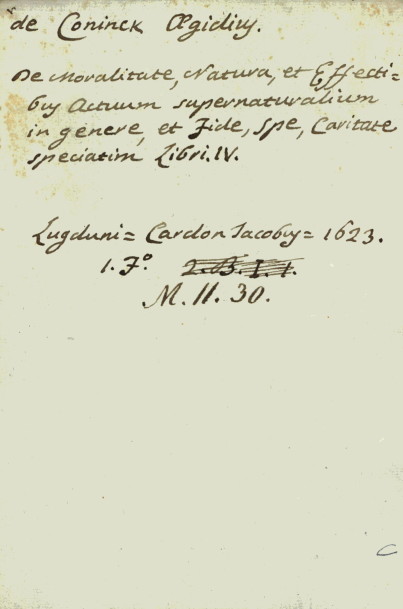 de Coninck Ægidius.
De Moralitate, Natura, et Effecti=
bus Actuum supernaturalium
in genere, et Fide, Spe, Caritate
speciatim Libri. IV.
Lugduni= Cardon Jacobus= 1623.
1. Fº. 2. B. I. 1.
M. 11. 30.
C